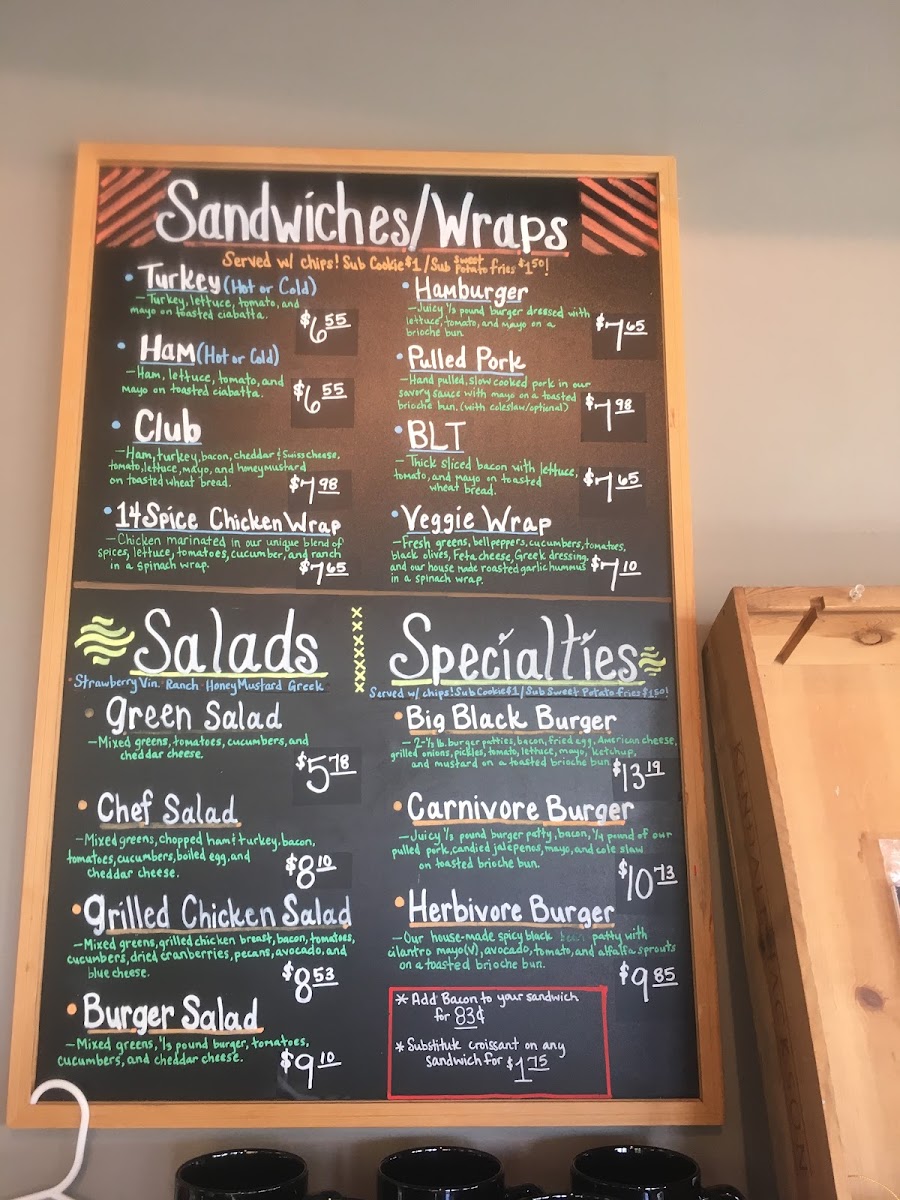 Sandwiches/Wraps
Served w/ chips! Sub Cookie $1 / Sub Sweet Potato fries $1.50!
• Turkey (Hot or Cold)
—Turkey, lettuce, tomato, and
mayo on toasted ciabatta.
$6.55
• Ham (Hot or Cold)
—Ham, lettuce, tomato, and
mayo on toasted ciabatta.
$6.55
• Club
—Ham, turkey, bacon, cheddar & Swiss cheese,
tomato, lettuce, mayo, and honey mustard
on toasted wheat bread.
$7.98
• 14 Spice Chicken Wrap
—Chicken marinated in our unique blend of
spices, lettuce, tomatoes, cucumber, and ranch
in a spinach wrap.
$7.65
• Hamburger
—Juicy 1/3 pound burger dressed with
lettuce, tomato, and mayo on a
brioche bun
$7.65
• Pulled Pork
—Hand pulled, slow cooked pork in our
savory sauce with mayo on a toasted
brioche bun. (with coleslaw/optional)
$7.98
• BLT
—Thick sliced bacon with lettuce,
tomato, and mayo on toasted
wheat bread.
$7.65
• Veggie Wrap
—Fresh greens, bell peppers, cucumbers, tomatoes,
black olives, Feta cheese, Greek dressing,
and our house made roasted garlic hummus
in a spinach wrap.
$7.10
Salads
Strawberry Vin. Ranch Honey Mustard Greek
• Green Salad
—Mixed greens, tomatoes, cucumbers, and
cheddar cheese.
$5.78
• Chef Salad
—Mixed greens, chopped ham & turkey, bacon,
tomatoes, cucumbers, boiled egg, and
cheddar cheese.
$8.10
• Grilled Chicken Salad
—Mixed greens, grilled chicken breast, bacon, tomatoes,
cucumbers, dried cranberries, pecans, avocado, and
blue cheese.
$8.53
• Burger Salad
—Mixed greens, 1/3 pound burger, tomatoes,
cucumbers, and cheddar cheese.
$9.10
Specialties
Served w/ chips! Sub Cookie $1 / Sub Sweet Potato fries $1.50!
• Big Black Burger
— 2-1/3 lb. burger patties, bacon, fried egg, American cheese,
grilled onions, pickles, tomato, lettuce, mayo, ketchup,
and mustard on a toasted brioche bun
$13.19
• Carnivore Burger
—Juicy 1/3 pound burger patty, bacon, 1/4 pound of our
pulled pork, candied jalepenos, mayo, and cole slaw
on toasted brioche bun.
$10.73
• Herbivore Burger
—Our house-made spicy black bean patty with
cilantro mayo(v), avocado, tomato, and alfalfa sprouts
on a toasted brioche bun.
$9.85
* Add Bacon to your sandwich
for 83¢
* Substitute croissant on any
sandwich for $1.75